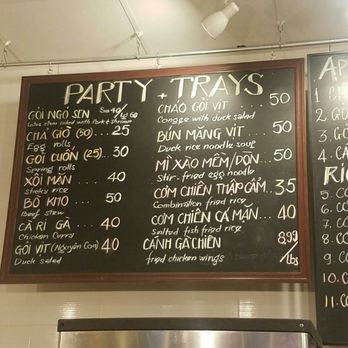 PARTY + TRAYS
GỎI NGÓ SEN Sm 40/Lg 60
Lotus stem salad with Pork & Shrimp
CHẢ GIÒ (50)... 25
Egg rolls
GỎI CUỐN (25).. 30
Spring rolls
XÔI MẶN .... 40
Sticky rice
BÒ KHO .... 50
Beef stew
CÀ RI GÀ ... 40
Chicken Curry
GỎI VỊT (Nguyên Con) 40
Duck salad
CHÁO GỎI VỊT ... 50
Congee with duck salad
BÚN MĂNG VỊT ... 50
Duck rice noodle soup
MÌ XÀO MỀM/DÒN... 50
Stir-fried egg noodle
CƠM CHIÊN THẬP CẨM.. 35
Combination fried rice
CƠM CHIÊN CÁ MẶN ... 40
Salted fish fried rice
CÁNH GÀ CHIÊN 8.99/lbs
fried chicken wings
AP
1. C
2. G
3. G
4. C
RIC
5.
6.
7.
8. C
9. C
10. C
11. C